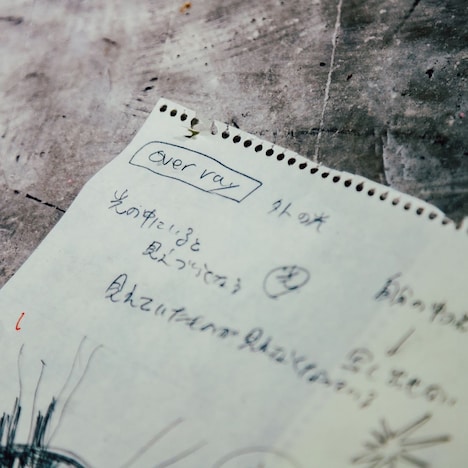 over ray
外の光
光の中にいると
見えづらくなる
光
見えていたものが見えなくなっている
自分の中の